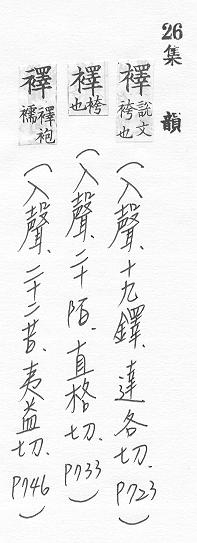 26集 韻
襗 說文袴也 (入聲、十九鐸、達各切、P723)
襗 袴也 (入聲、二十陌、直格切、P733)
襗 襗袍襦 (入聲、二十二昔、夷益切、P746)